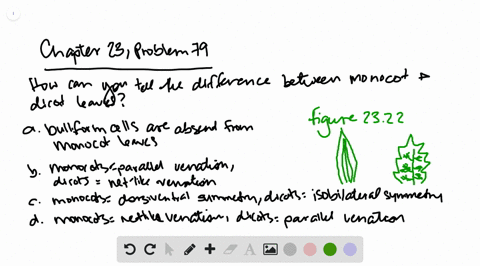 Chapter 23, Problem 79
How can you tell the difference between monocot &
dicot leaves?
a. bulliform cells are absent from
monocot leaves
figure 23.22
b. monocots = parallel venation,
dicots = netlike venation
c. monocots = dorsiventral symmetry, dicots = isobilateral symmetry
d. monocots = netlike venation, dicots = parallel venation